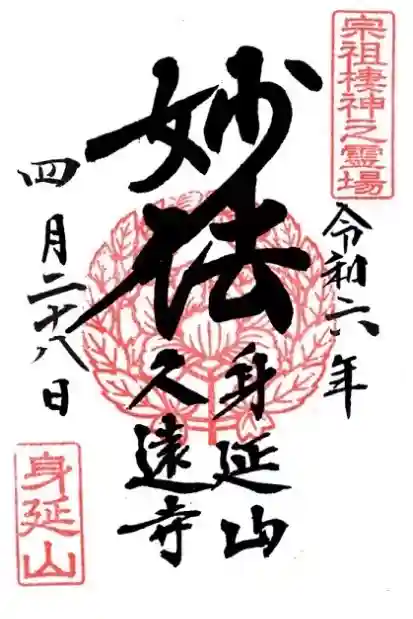 宗祖棲神之霊場
令和六年
妙法
身延山
久遠寺
四月二十八日
身延山